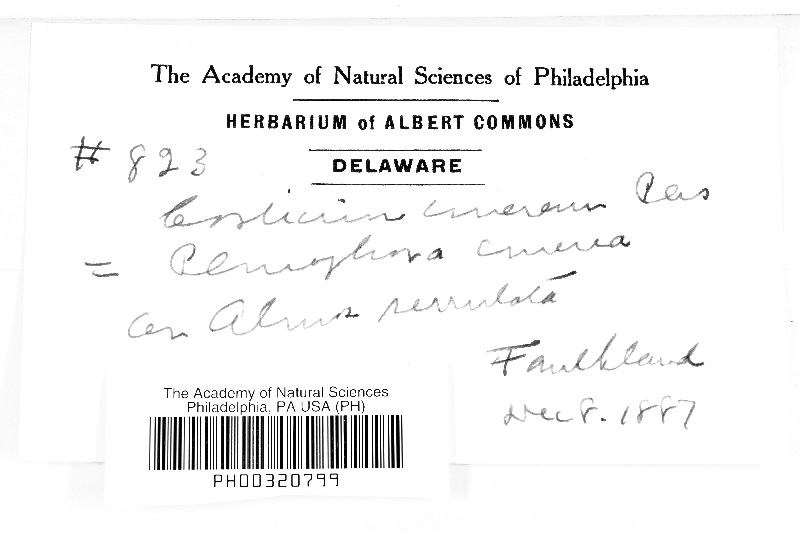 The Academy of Natural Sciences of Philadelphia
HERBARIUM of ALBERT COMMONS
# 823
DELAWARE
Corticium cinereum Pers
= Peniophora cinerea
on Alnus serrulata
Faulkland
Dec 8. 1887
The Academy of Natural Sciences
Philadelphia, PA USA (PH)
PH00320799